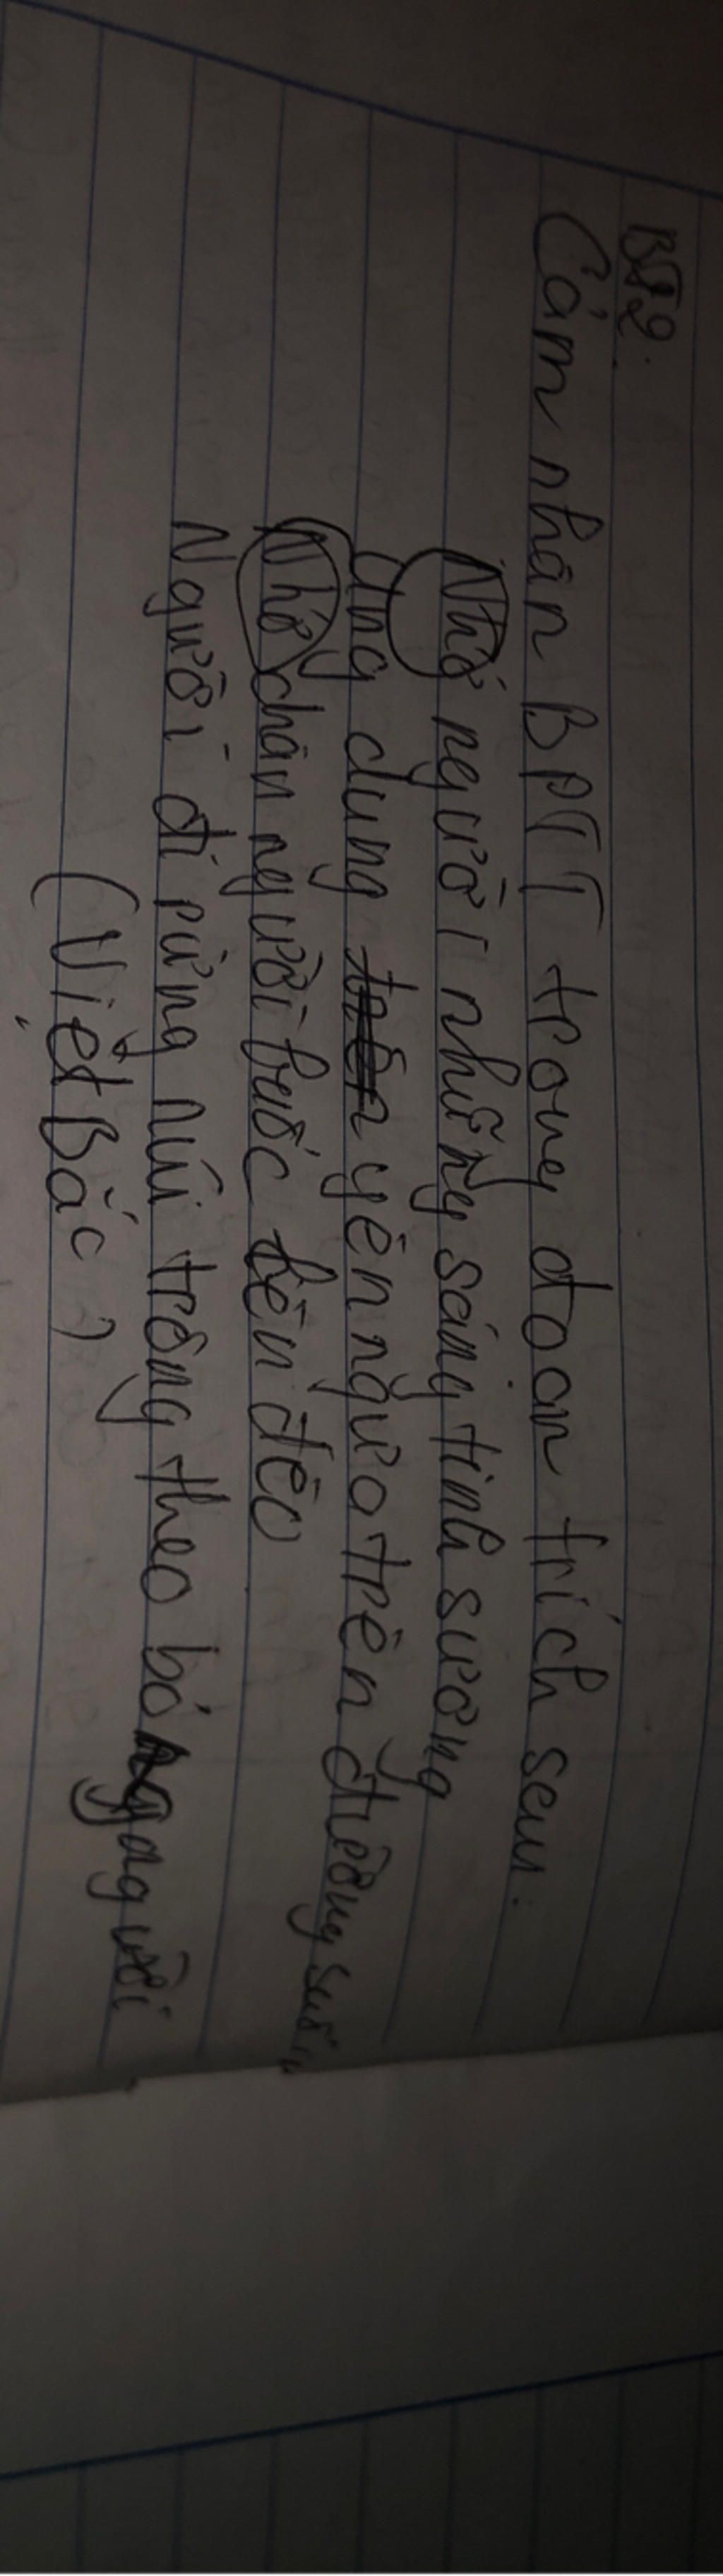 BT2:
Cảm nhận BPTT trong đoạn trích sau.
Nhớ người những sáng tinh sương
Ung dung yên ngựa trên đường suối
Nhớ chân người bước lên đèo
Người đi rừng núi trông theo bóng người
(Việt Bắc)